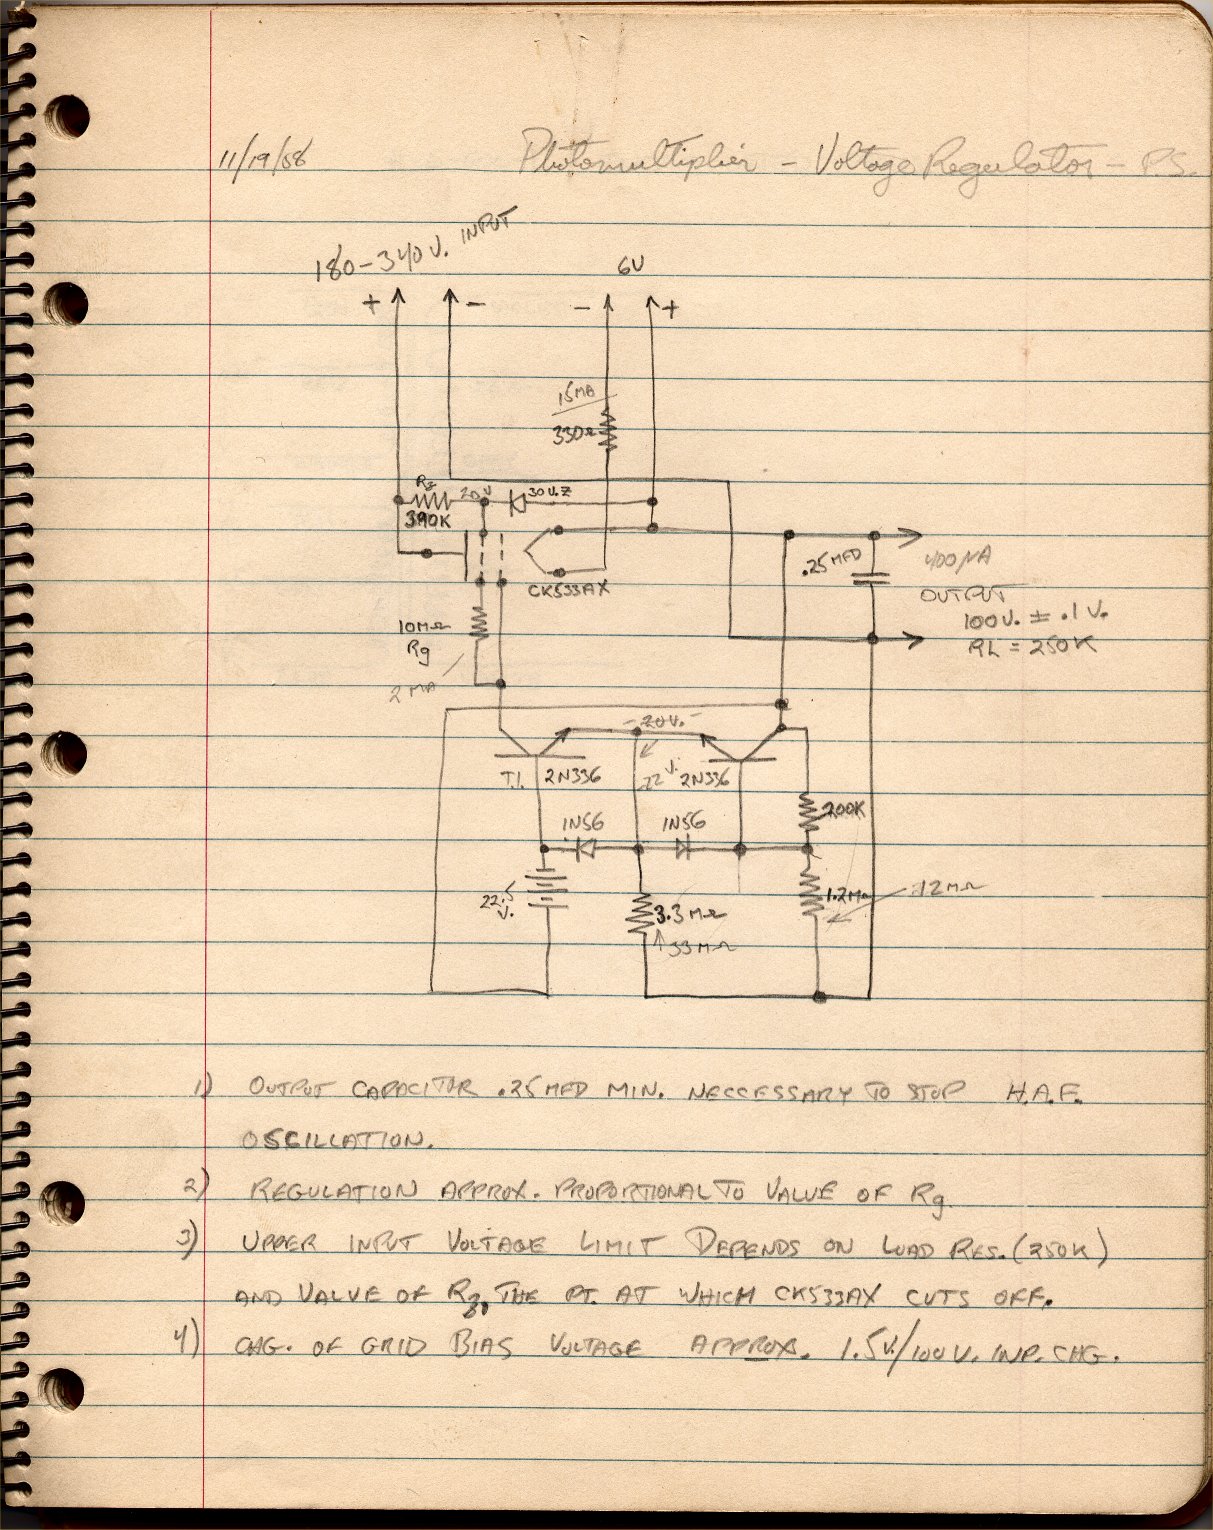 11/19/58 Photomultiplier - Voltage Regulator - P.S.
180-340V. INPUT
6V
+ - - +
15MA
330Ω
Rz 20V 30V.Z
390K
CK533AX
.25MFD
400µA
OUTPUT
100V. ± .1V.
RL = 250K
10MΩ
Rg
2MA
-20V.-
T.I. 2N336
22V. 2N336
200K
1N56 1N56
22.5
V.
3.3MΩ
33MΩ
1.2MΩ
12MΩ
1) OUTPUT CAPACITOR .25MFD MIN. NECCESSARY TO STOP H.A.F.
OSCILLATION.
2) REGULATION APPROX. PROPORTIONAL TO VALUE OF Rg
3) UPPER INPUT VOLTAGE LIMIT DEPENDS ON LOAD RES. (250K)
AND VALUE OF Rz, THE PT. AT WHICH CK533AX CUTS OFF.
4) CHG. OF GRID BIAS VOLTAGE APPROX. 1.5V/100V. INP. CHG.